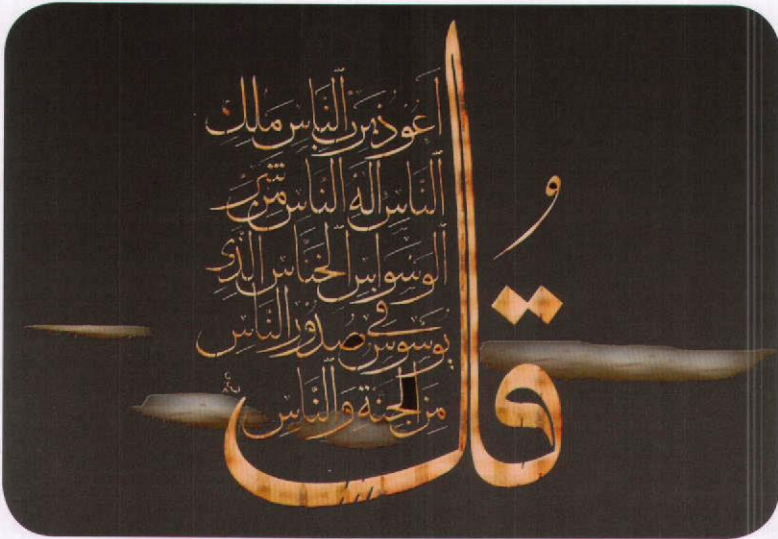 قُل
اَعُوذُ بِرَبِّ النَّاسِ مَلِكِ
النَّاسِ اِلٰهِ النَّاسِ مِنْ شَرِّ
الْوَسْوَاسِ الْخَنَّاسِ الَّذِي
يُوَسْوِسُ فِي صُدُورِ النَّاسِ
مِنَ الْجِنَّةِ وَالنَّاسِ